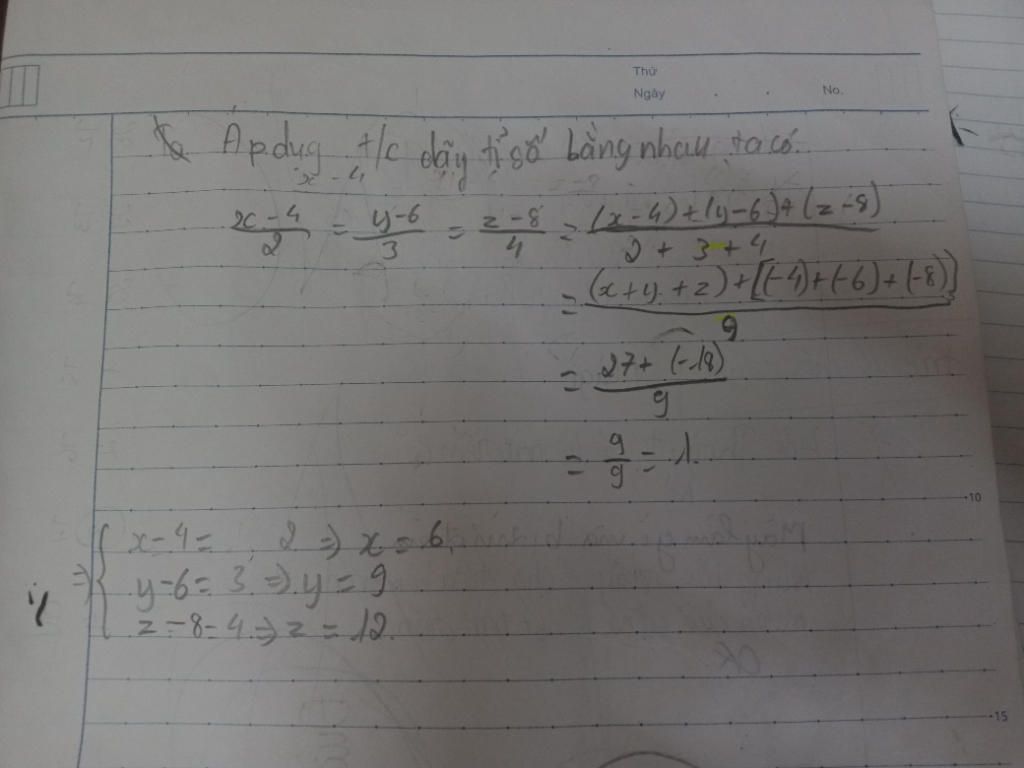 Thứ
Ngày . . No.
Áp dug t/c dãy tỉ số bằng nhau ta có
x - 4
x-4/2 = y-6/3 = z-8/4 = (x-4)+(y-6)+(z-8)/2 + 3 + 4
= (x+y+z)+[(-4)+(-6)+(-8)]/9
= 27+(-18)/9
= 9/9 = 1.
10
=> { x-4 = 2 => x = 6
y-6 = 3 => y = 9
z-8-4 => z = 12.
15